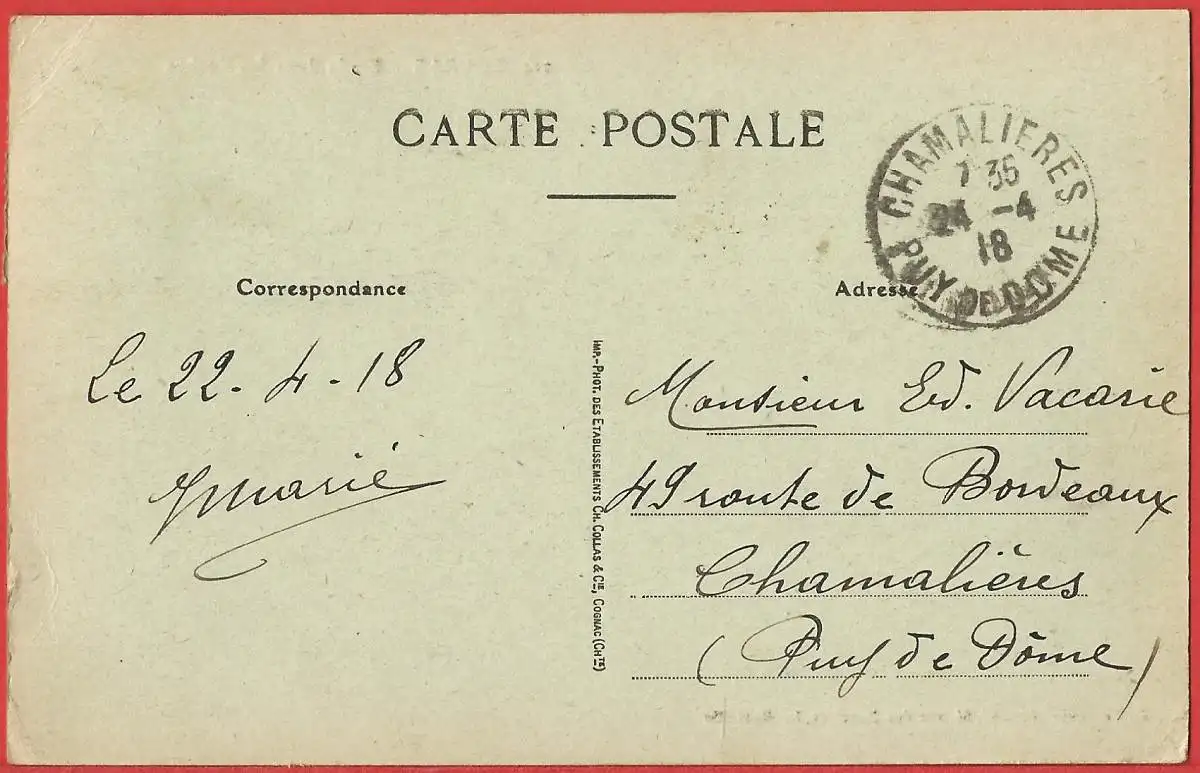 CARTE POSTALE
CHAMALIERES
7 35
24 -4
18
PUY DE DOME
Correspondance
Adresse
Le 22-4-18
IMP.-PHOT. DES ETABLISSEMENTS CH. COLLAS & CIE, COGNAC (CHTE)
Monsieur Ed. Vacarie
49 route de Bordeaux
Chamalières
(Puy de Dôme)